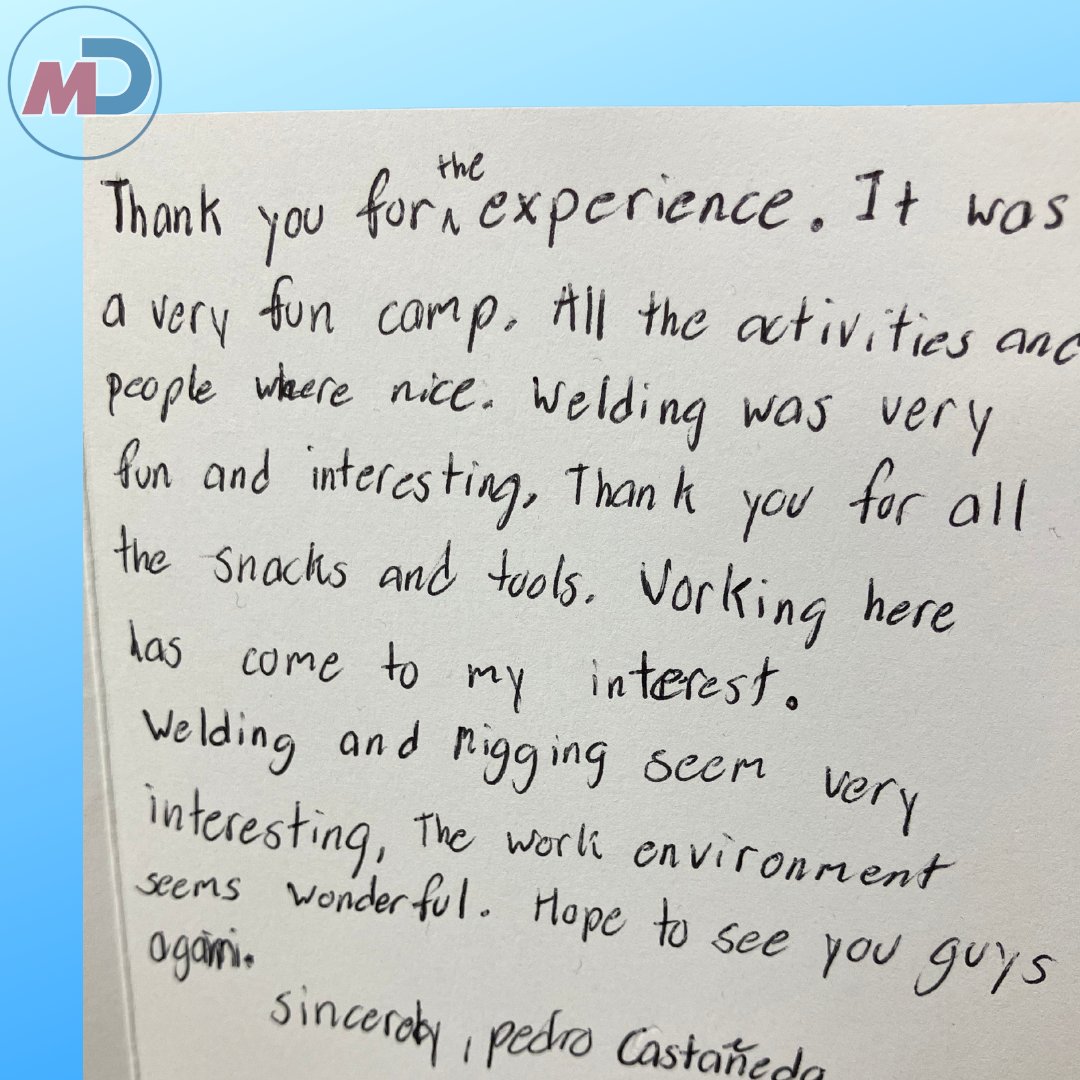 MD
Thank you for the experience. It was
a very fun camp. All the activities and
people where nice. Welding was very
fun and interesting, Thank you for all
the snacks and tools. Working here
has come to my interest.
Welding and Rigging seem very
interesting, The work environment
seems wonderful. Hope to see you guys
again.
sincerely, pedro Castañeda